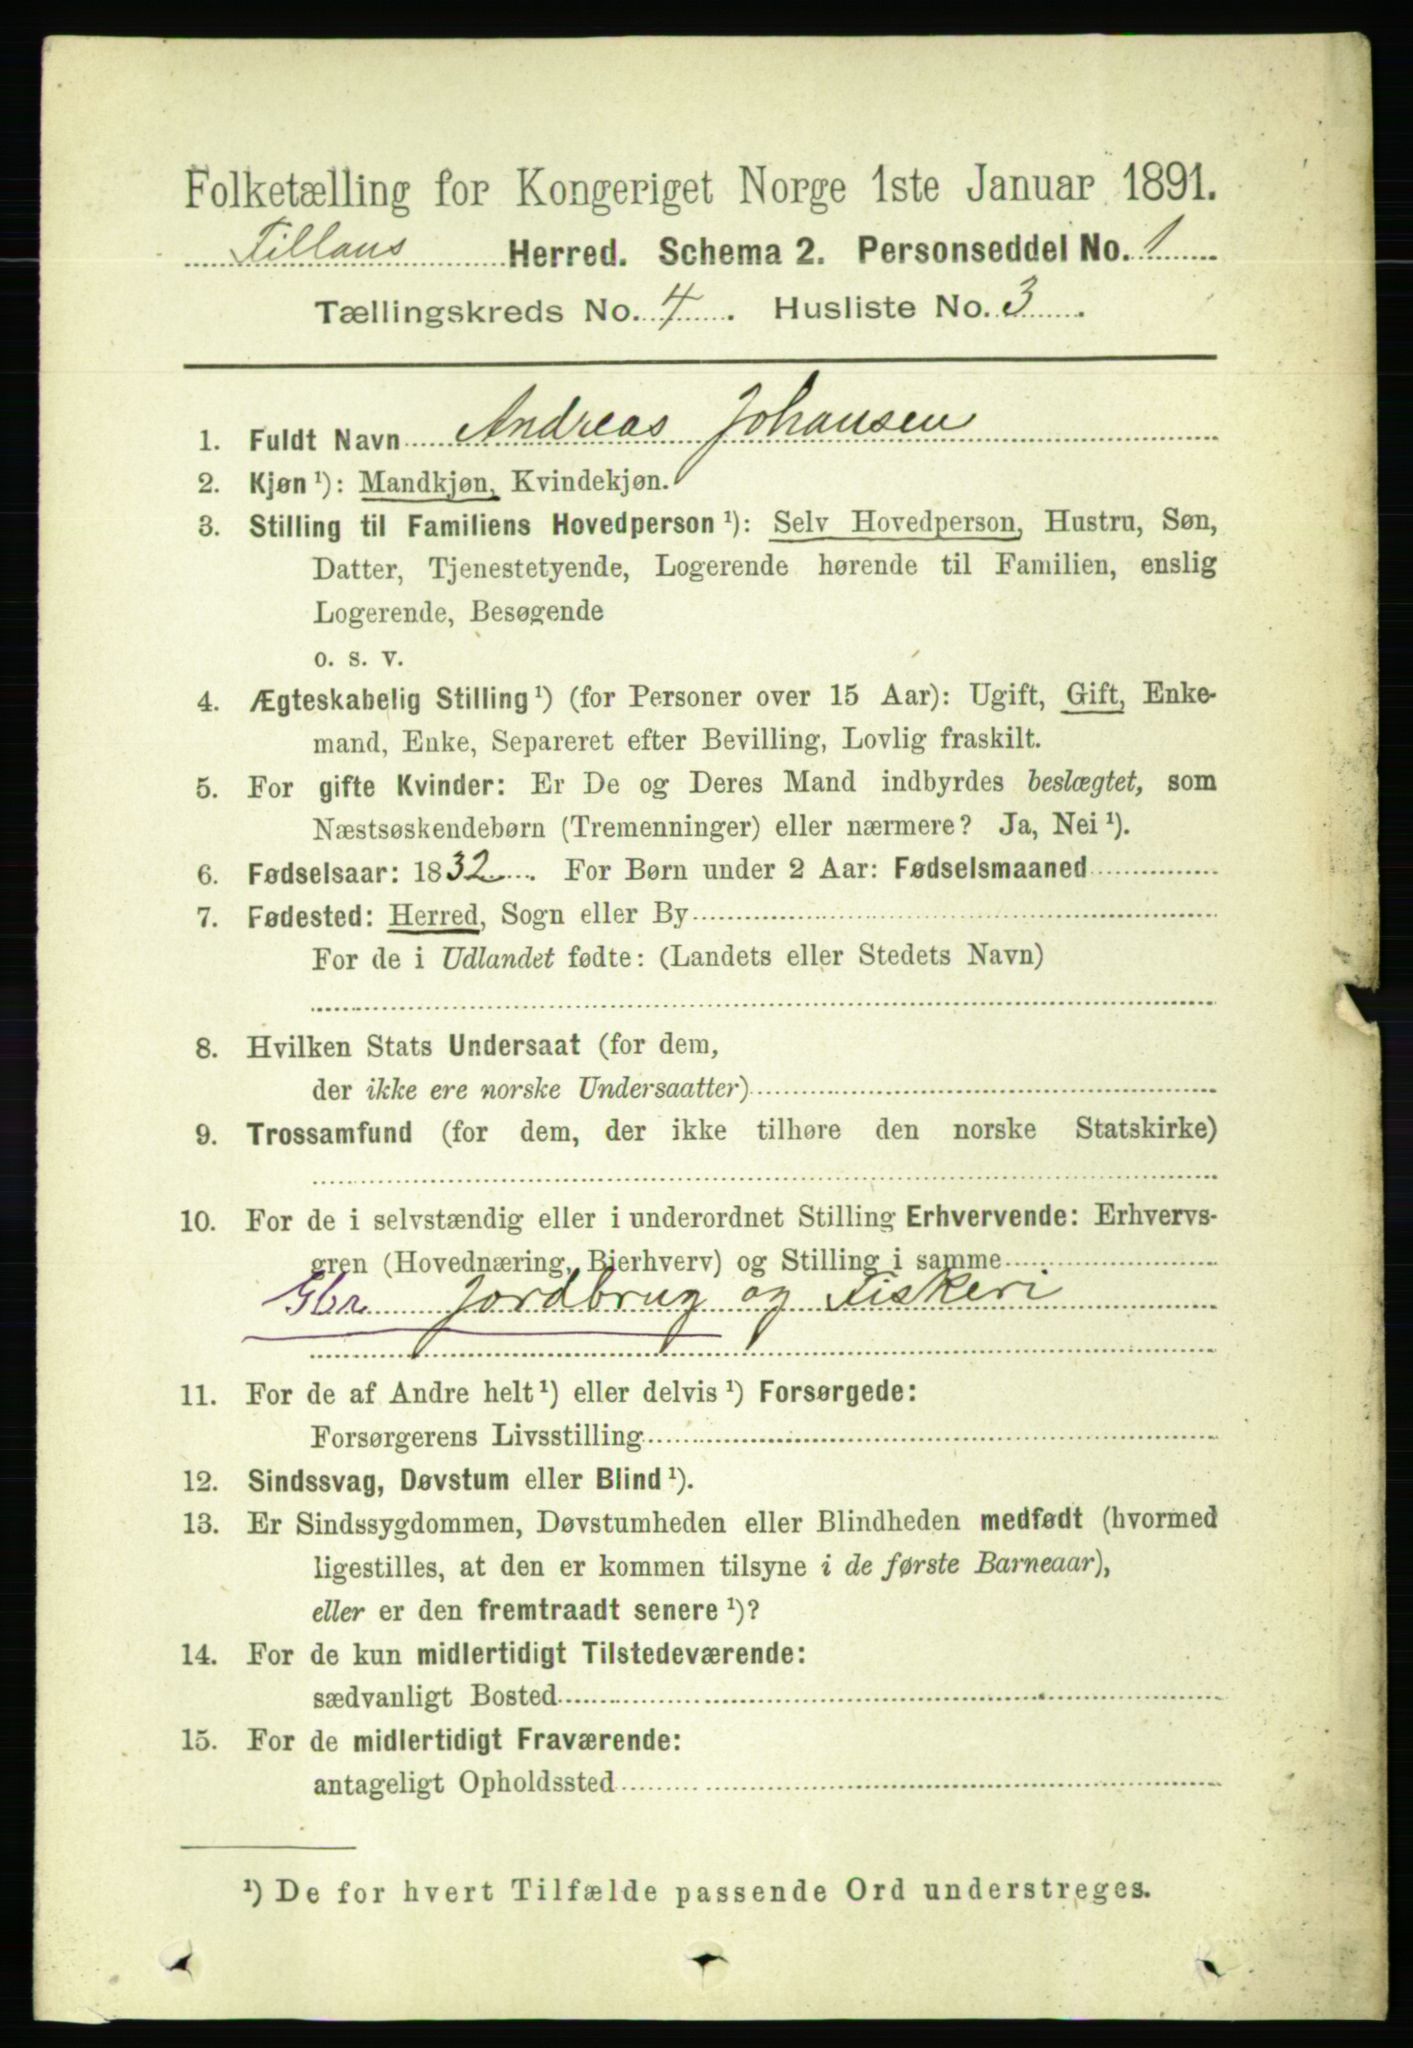 Folketælling for Kongeriget Norge 1ste Januar 1891.
Fillans Herred. Schema 2. Personseddel No. 1
Tællingskreds No. 4. Husliste No. 3.
1. Fuldt Navn Andreas Johansen
2. Kjøn ¹): Mandkjøn, Kvindekjøn.
3. Stilling til Familiens Hovedperson ¹): Selv Hovedperson, Hustru, Søn,
Datter, Tjenestetyende, Logerende hørende til Familien, enslig
Logerende, Besøgende
o. s. v.
4. Ægteskabelig Stilling ¹) (for Personer over 15 Aar): Ugift, Gift, Enke-
mand, Enke, Separeret efter Bevilling, Lovlig fraskilt.
5. For gifte Kvinder: Er De og Deres Mand indbyrdes beslægtet, som
Næstsøskendebørn (Tremenninger) eller nærmere? Ja, Nei ¹).
6. Fødselsaar: 1832. For Børn under 2 Aar: Fødselsmaaned
7. Fødested: Herred, Sogn eller By
For de i Udlandet fødte: (Landets eller Stedets Navn)
8. Hvilken Stats Undersaat (for dem,
der ikke ere norske Undersaatter)
9. Trossamfund (for dem, der ikke tilhøre den norske Statskirke)
10. For de i selvstændig eller i underordnet Stilling Erhvervende: Erhvervs-
gren (Hovednæring, Bierhverv) og Stilling i samme
Gbr. Jordbrug og Fiskeri
11. For de af Andre helt ¹) eller delvis ¹) Forsørgede:
Forsørgerens Livsstilling
12. Sindssvag, Døvstum eller Blind ¹).
13. Er Sindssygdommen, Døvstumheden eller Blindheden medfødt (hvormed
ligestilles, at den er kommen tilsyne i de første Barneaar),
eller er den fremtraadt senere ¹)?
14. For de kun midlertidigt Tilstedeværende:
sædvanligt Bosted
15. For de midlertidigt Fraværende:
antageligt Opholdssted
¹) De for hvert Tilfælde passende Ord understreges.